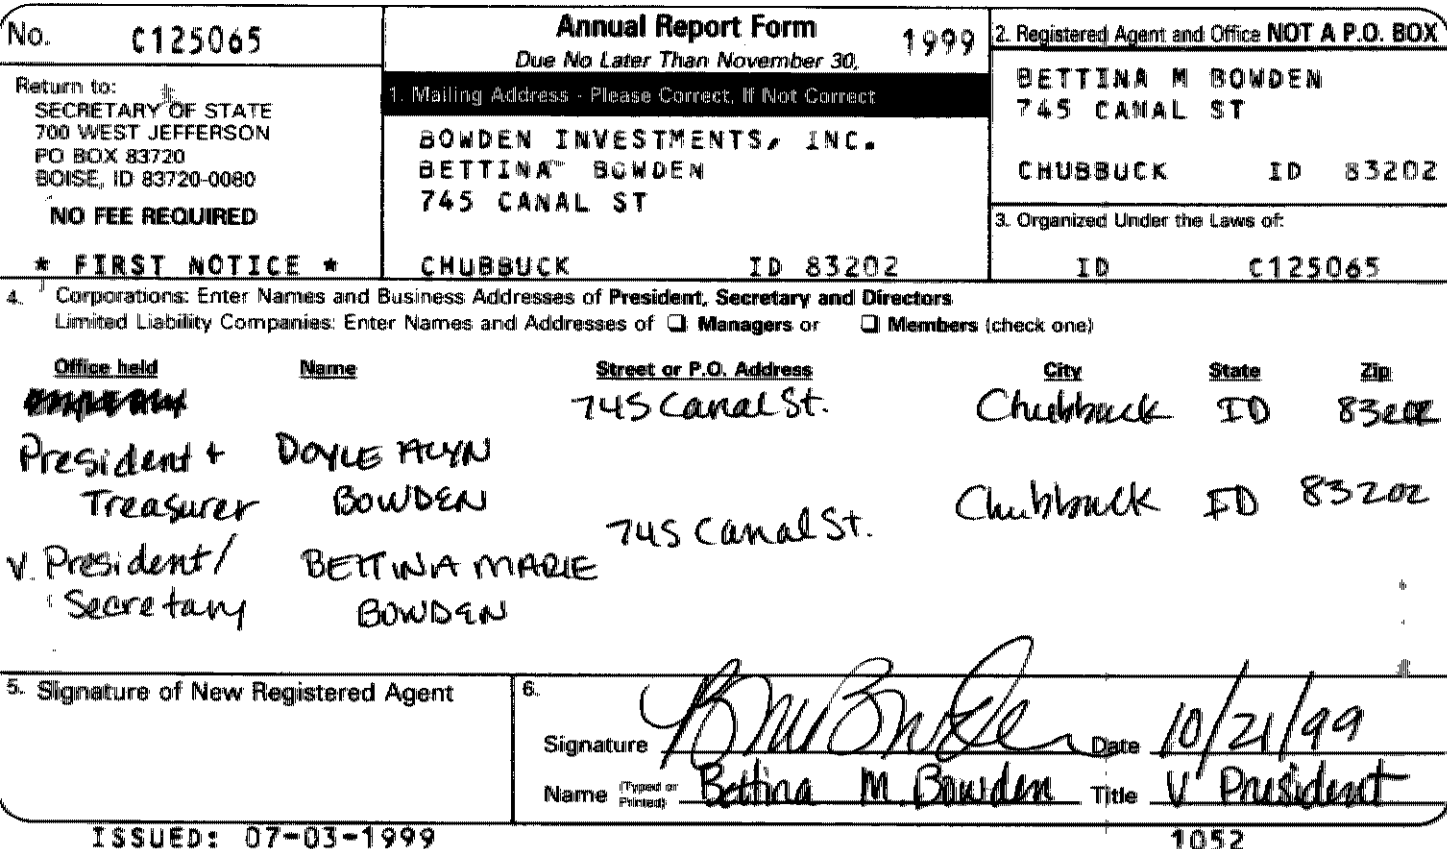 No. C125065
Return to:
SECRETARY OF STATE
700 WEST JEFFERSON
PO BOX 83720
BOISE, ID 83720-0080
NO FEE REQUIRED
* FIRST NOTICE *
Annual Report Form 1999
Due No Later Than November 30,
1. Mailing Address - Please Correct, If Not Correct
BOWDEN INVESTMENTS, INC.
BETTINA BOWDEN
745 CANAL ST
CHUBBUCK ID 83202
2. Registered Agent and Office NOT A P.O. BOX
BETTINA M BOWDEN
745 CANAL ST
CHUBBUCK ID 83202
3. Organized Under the Laws of:
ID C125065
4. Corporations: Enter Names and Business Addresses of President, Secretary and Directors
Limited Liability Companies: Enter Names and Addresses of ❑ Managers or ❑ Members (check one)
Office held Name Street or P.O. Address City State Zip
745 Canal St. Chubbuck ID 83202
President + DOYLE ALYN
Treasurer BOWDEN Chubbuck ID 83202
745 Canal St.
V. President/ BETTINA MARIE
Secretary BOWDEN
5. Signature of New Registered Agent
6.
Signature Date 10/21/99
Name (Typed or Printed) Bettina M. Bowden Title V President
ISSUED: 07-03-1999 1052